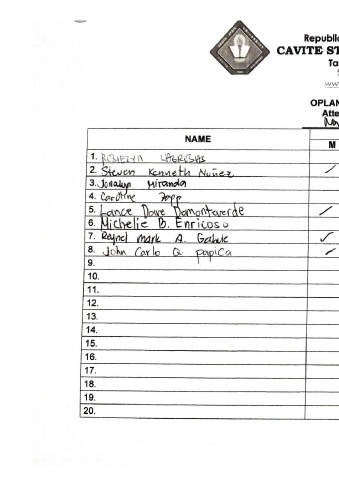 Republi
CAVITE ST
Ta
www.
OPLAN
Atte
NAME
M
1.
2. Steven Kenneth Nuñez
3. Jonalyn Miranda
4. Caroline
5. Lance Dave Damontaverde
6. Michelle B. Enricoso
7. Raynel Mark A.
8. John Carlo Q. Papica
9.
10.
11.
12.
13.
14.
15.
16.
17.
18.
19.
20.